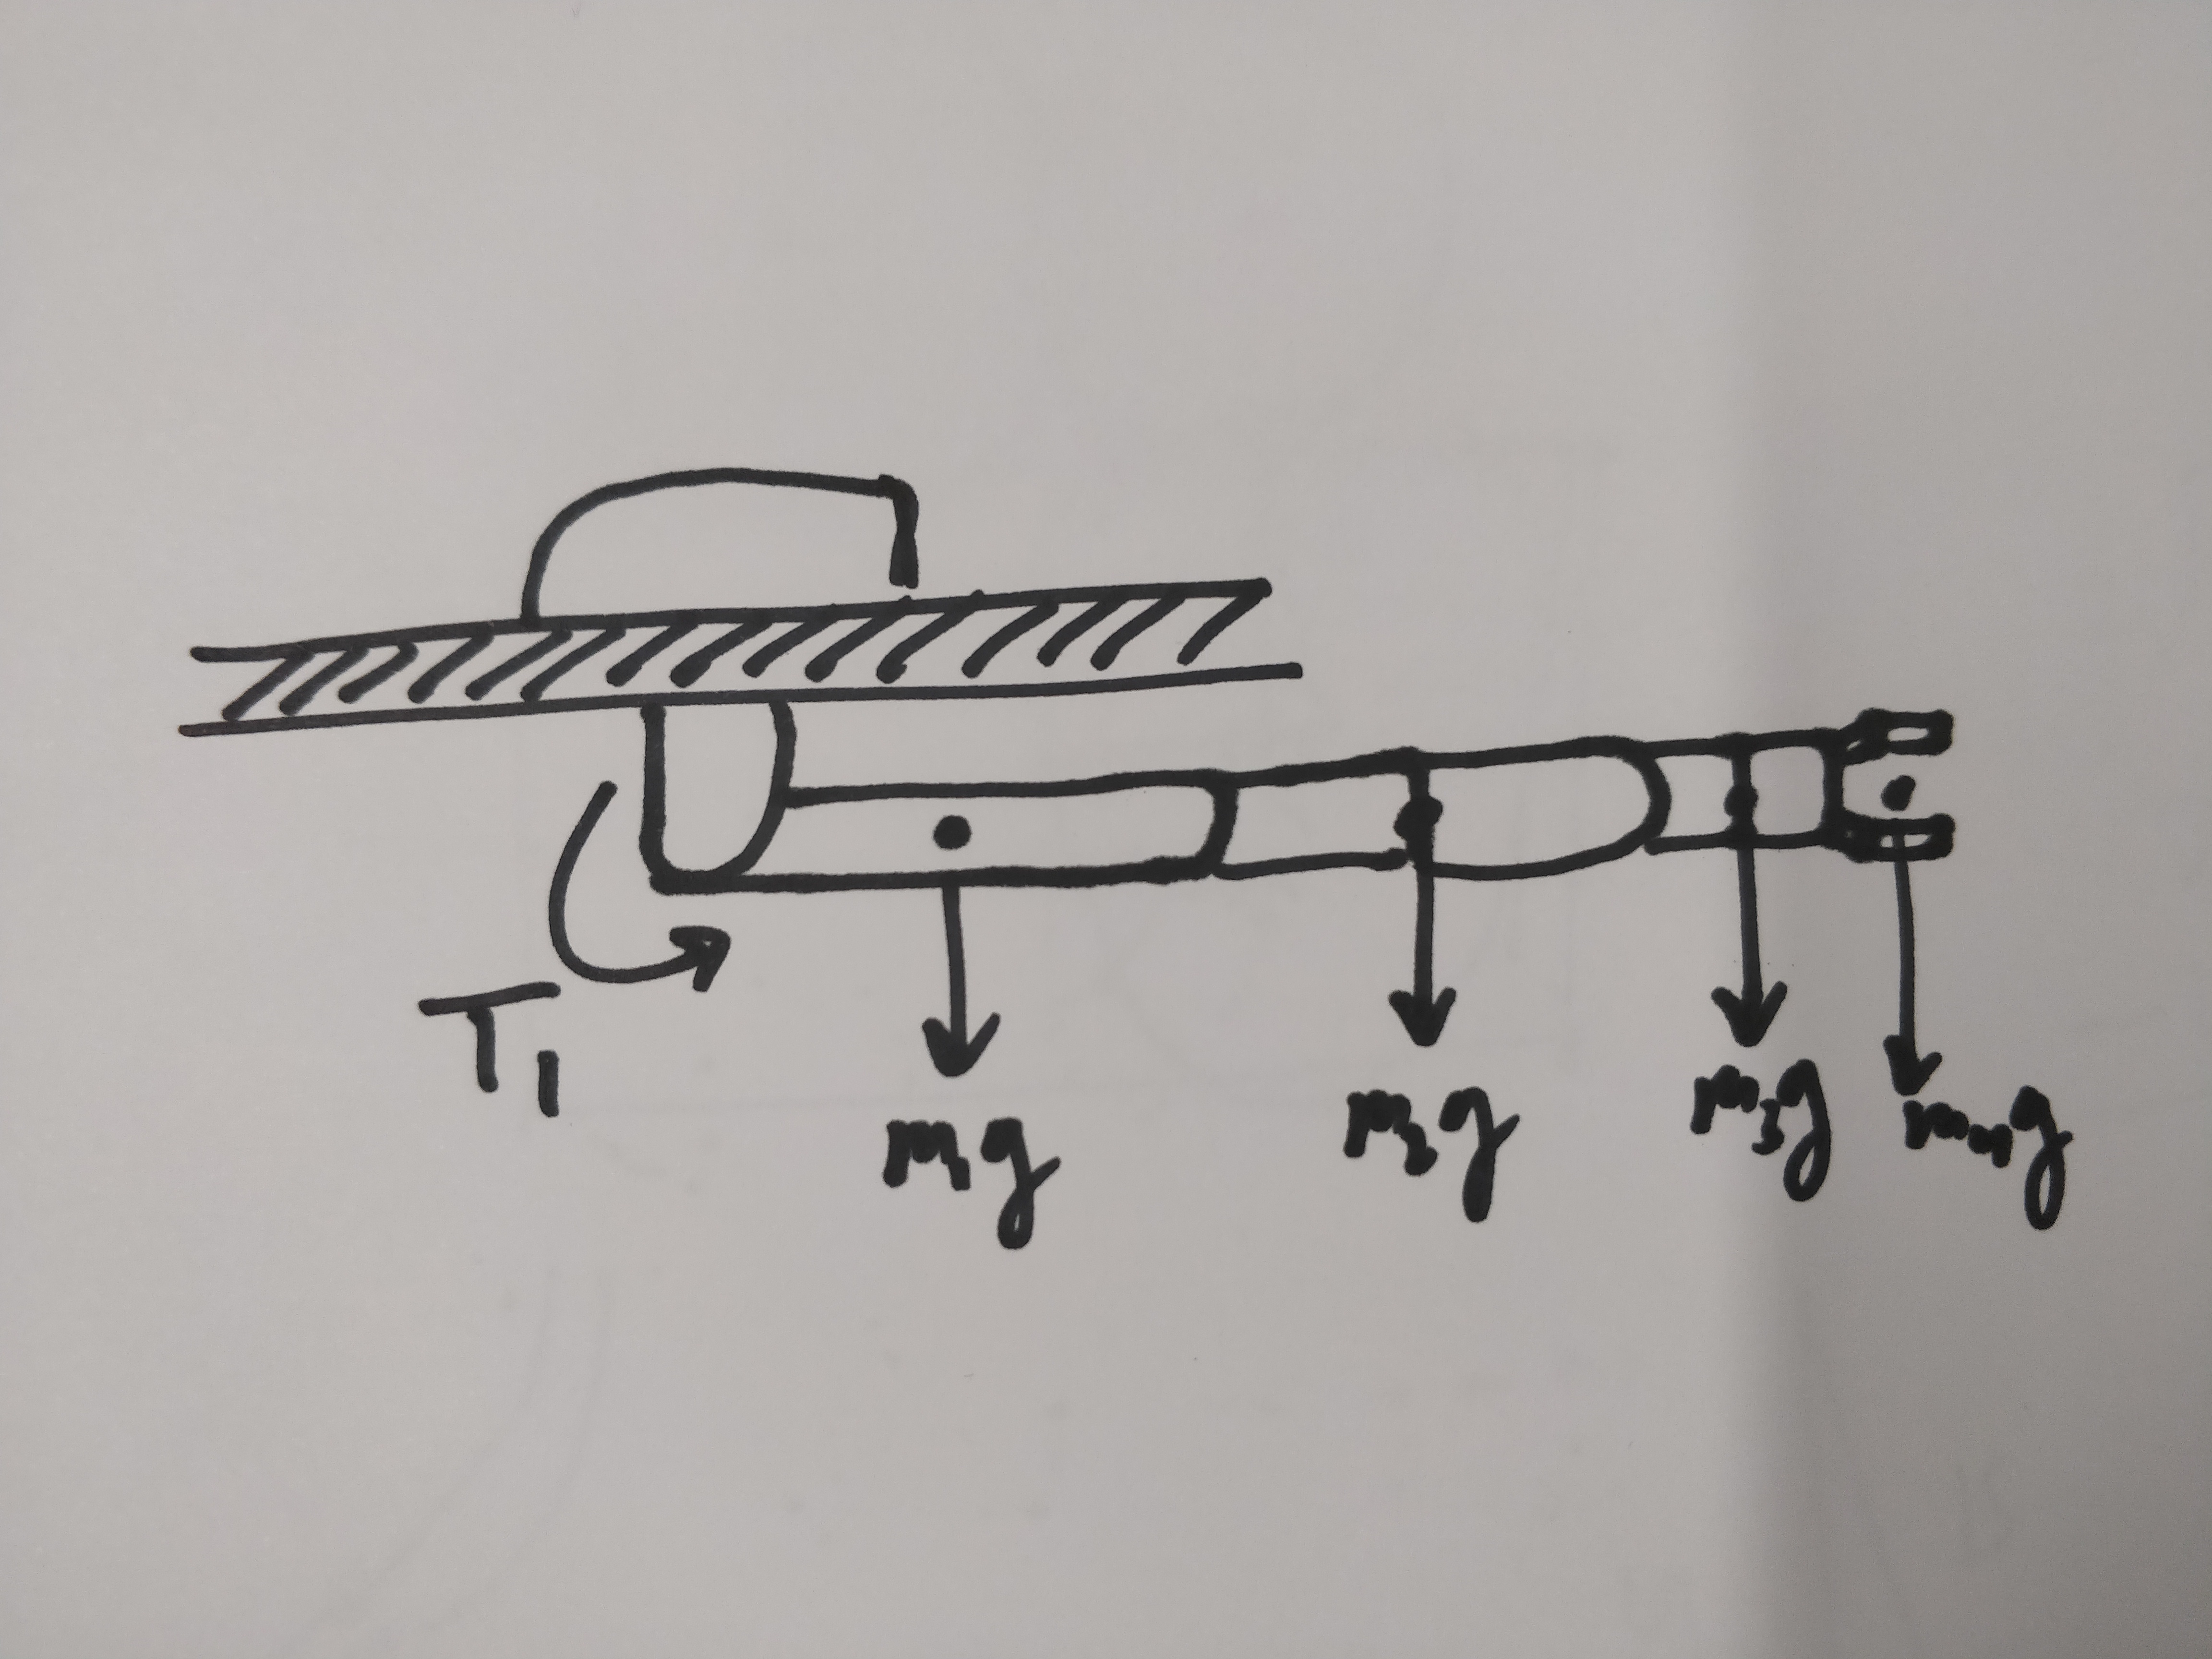 T1
m1g
m2g
m3g
mmg